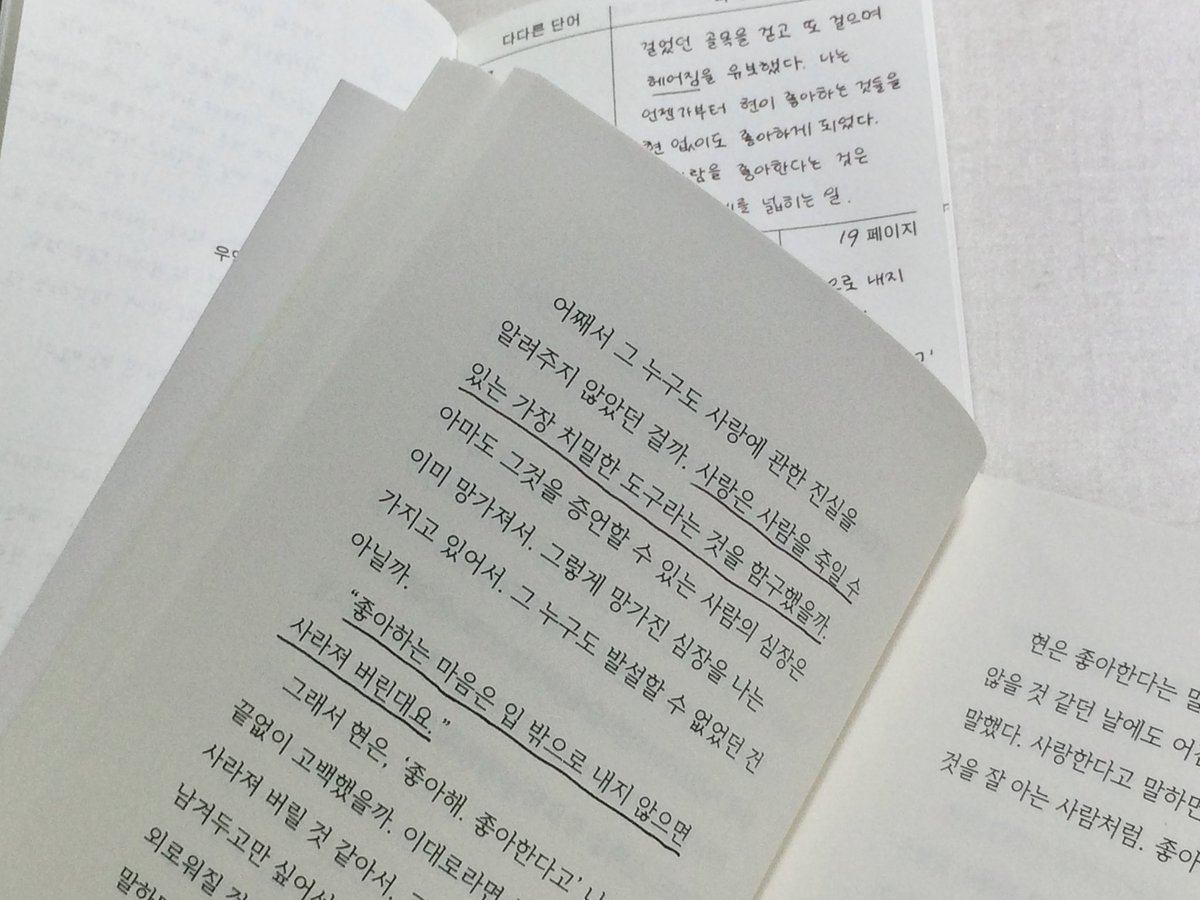 다다른 단어
걸었던 골목을 걷고 또 걸으며
헤어짐을 유보했다. 나는
언젠가부터 현이 좋아하는 것들을
현 없이도 좋아하게 되었다.
좋아한다는 것은
넓히는 일.
19 페이지
내지
어째서 그 누구도 사랑에 관한 진실을
알려주지 않았던 걸까. 사랑은 사람을 죽일 수
있는 가장 치밀한 도구라는 것을 함구했을까.
아마도 그것을 증언할 수 있는 사람의 심장은
이미 망가져서. 그렇게 망가진 심장을 나는
가지고 있어서. 그 누구도 발설할 수 없었던 건
아닐까.
“좋아하는 마음은 입 밖으로 내지 않으면
사라져 버린대요.”
그래서 현은, ‘좋아해. 좋아한다고’
끝없이 고백했을까. 이대로라면
사라져 버릴 것 같아서.
남겨두고만 싶어서
외로워질
현은 좋아한다는
않을 것 같던 날에도
말했다. 사랑한다고
것을 잘 아는 사람처럼.